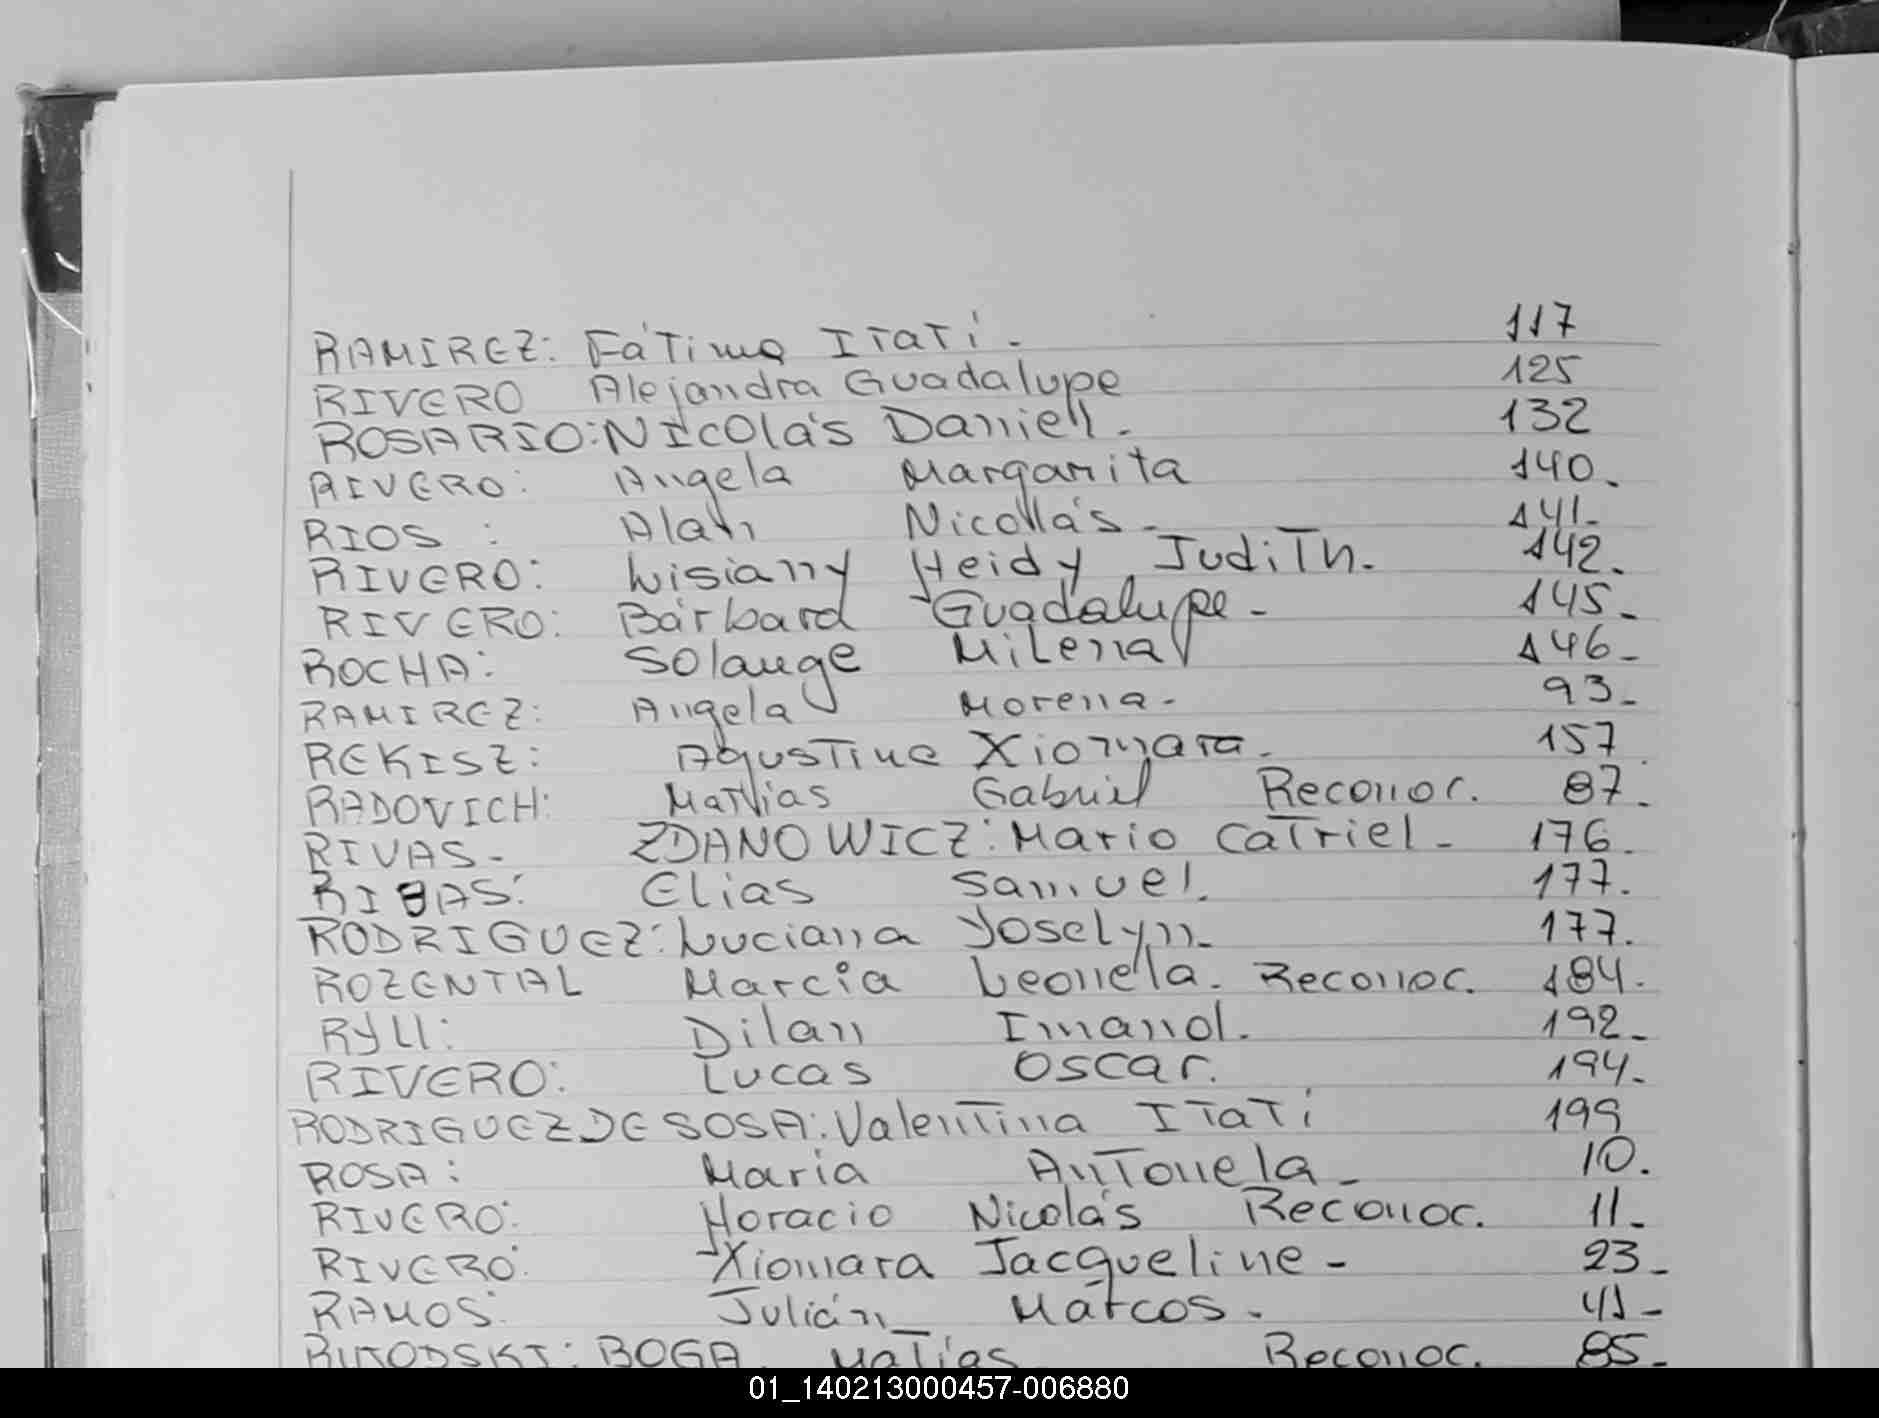 RAMIREZ: Fátima ITaTí. 117
RIVERO Alejandra Guadalupe 125
ROSARIO: Nicolás Daniel. 132
RIVERO: Angela Margarita 140.
RIOS : Alan Nicolás. 141-
RIVERO: Lisiany Heidy JudiTh. 142.
RIVERO: Bárbara Guadalupe- 145-
ROCHA: Solange Milena 146-
RAMIREZ: Angela Morena- 93-
REKISZ: AgusTina Xiomara. 157.
RADOVICH: MaTías Gabriel Reconoc. 87.
RIVAS- ZDANOWICZ: Mario CaTriel- 176.
RIBAS: Elias Samuel. 177.
RODRIGUEZ: Luciana Yoselyn- 177.
ROZENTAL Marcia Leonela. Reconoc. 184.
RYLL: Dilan Imanol. 192-
RIVERO: Lucas Oscar. 194-
RODRIGUEZ DE SOSA: ValenTina ITaTí 199
ROSA: María AnTonela- 10.
RIVERO: Horacio Nicolás Reconoc. 11-
RIVERO: Xiomara Jacqueline- 23-
RAMOS: Julián Marcos. 41-
BOGA MaTías Reconoc. 85-
01_140213000457-006880